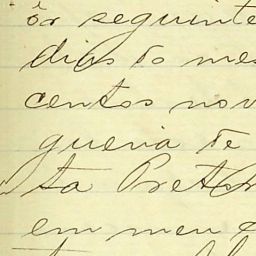 ôr seguinte
dias do mes
centos nov
gueria de
ta Pretor
em meu c